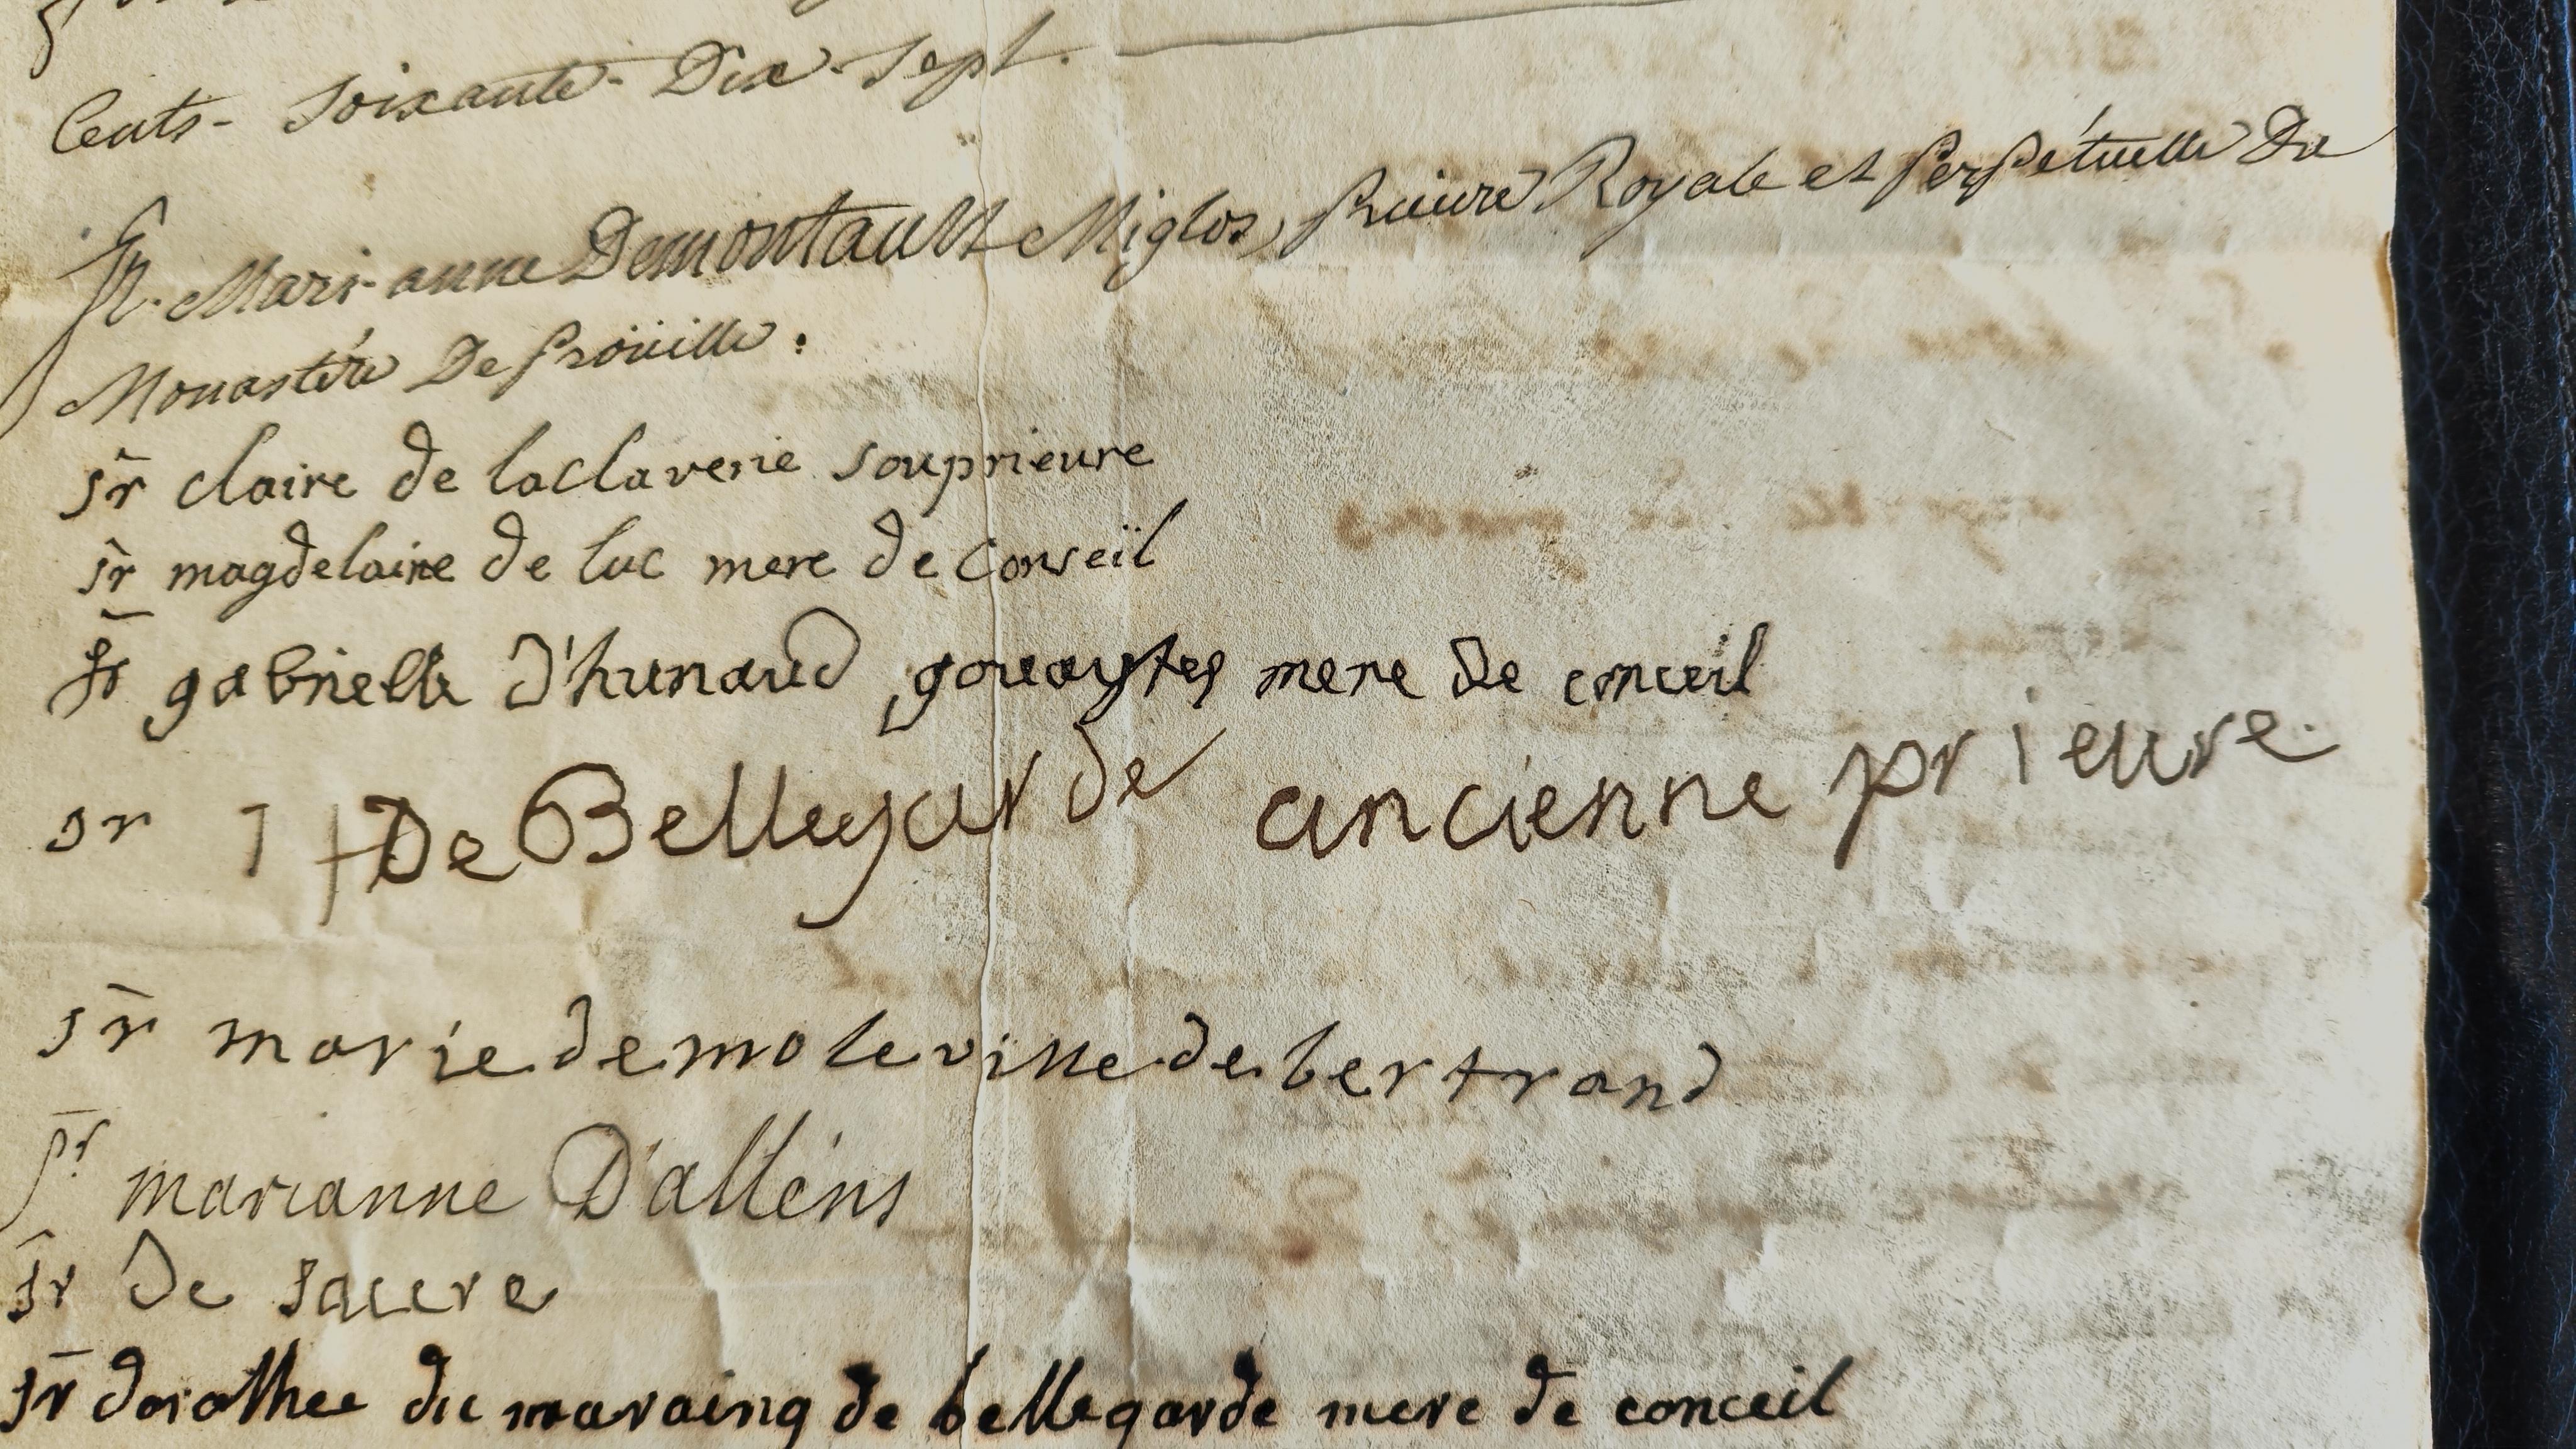 Cents - Soixante - Dix - Sept.
Sr. Mari-anne Demontault Miglos, Prieure Royale et Perpétuelle Du
Monastére De Proüille.
sr claire de laclaverie souprieure
sr magdelaine de luc mere de Conseïl
sr gabrielle d'hunaud mere de conceil
sr De Bellegarde ancienne prieure.
sr marie de moleville de bertrand
sr marianne D'alléns
sr de sacere
sr dorothee du maraing de bellegarde mere de conceil